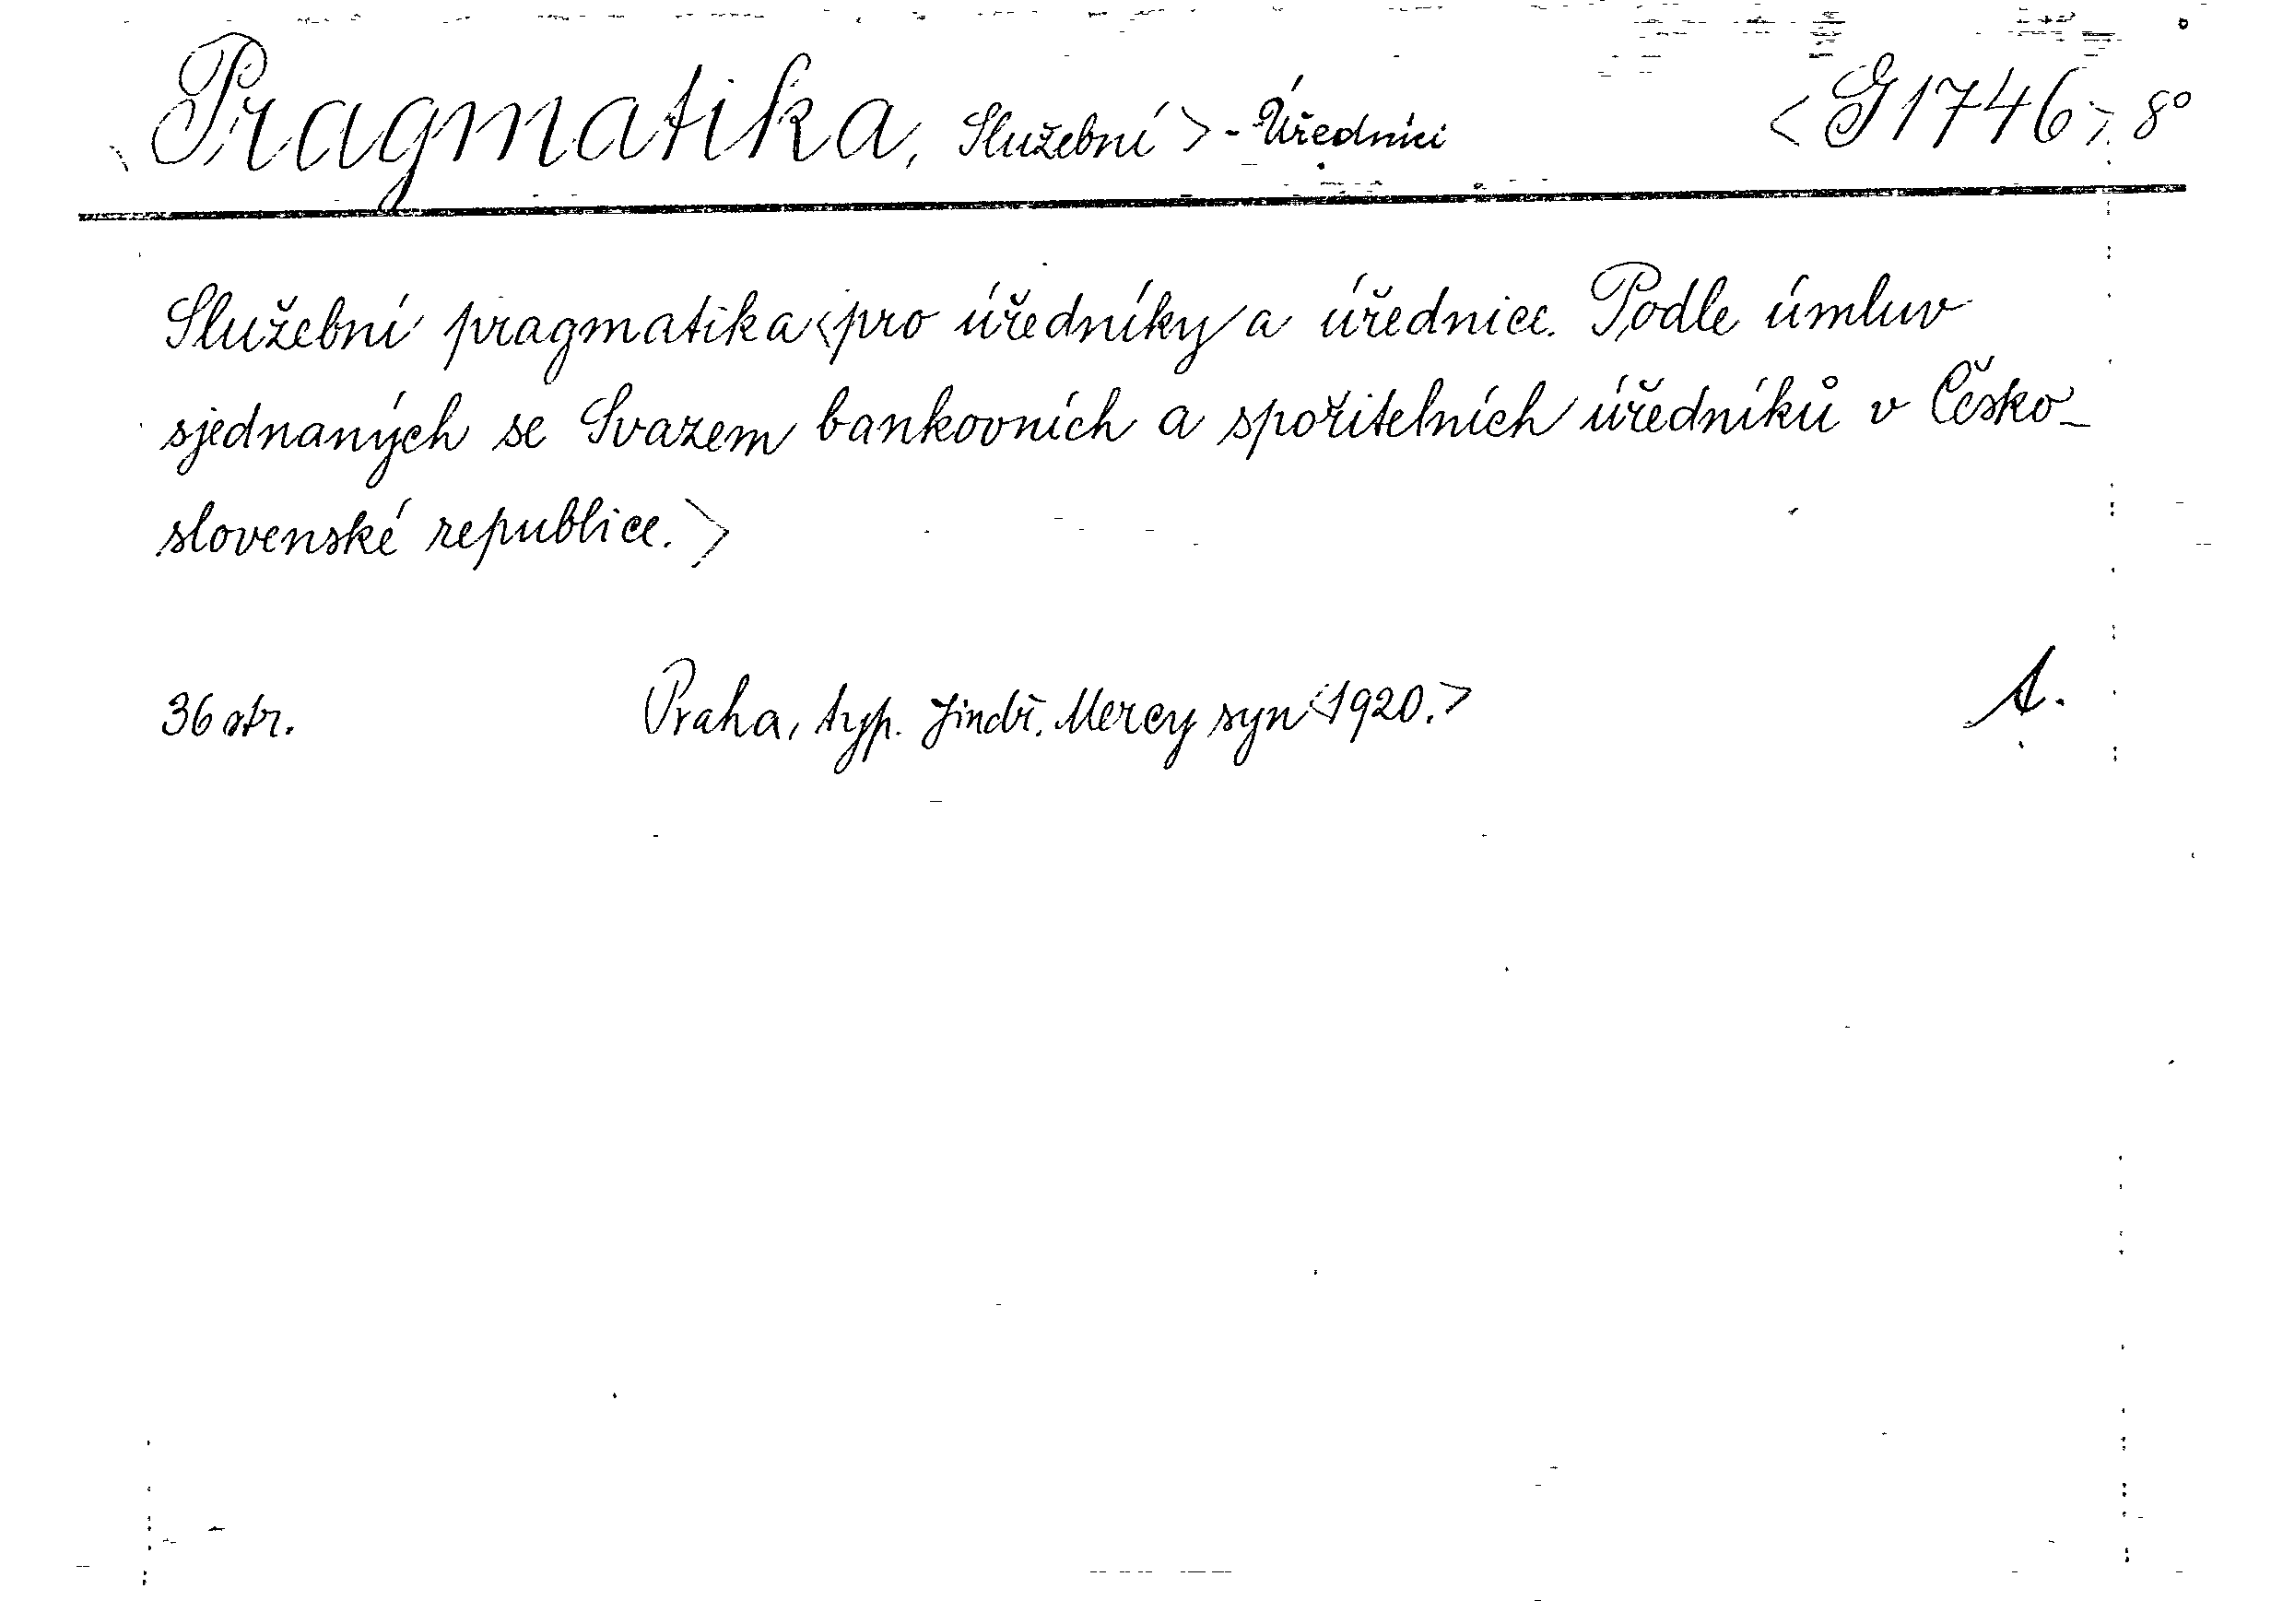 Pragmatika, Služební > - Úředníci <G 1746> 8°
Služební pragmatika <pro úředníky a úřednice. Podle úmluv
sjednaných se Svazem bankovních a spořitelních úředníků v Česko-
slovenské republice.>
36 str. Praha, typ. Jindř. Mercy syn <1920.> A.